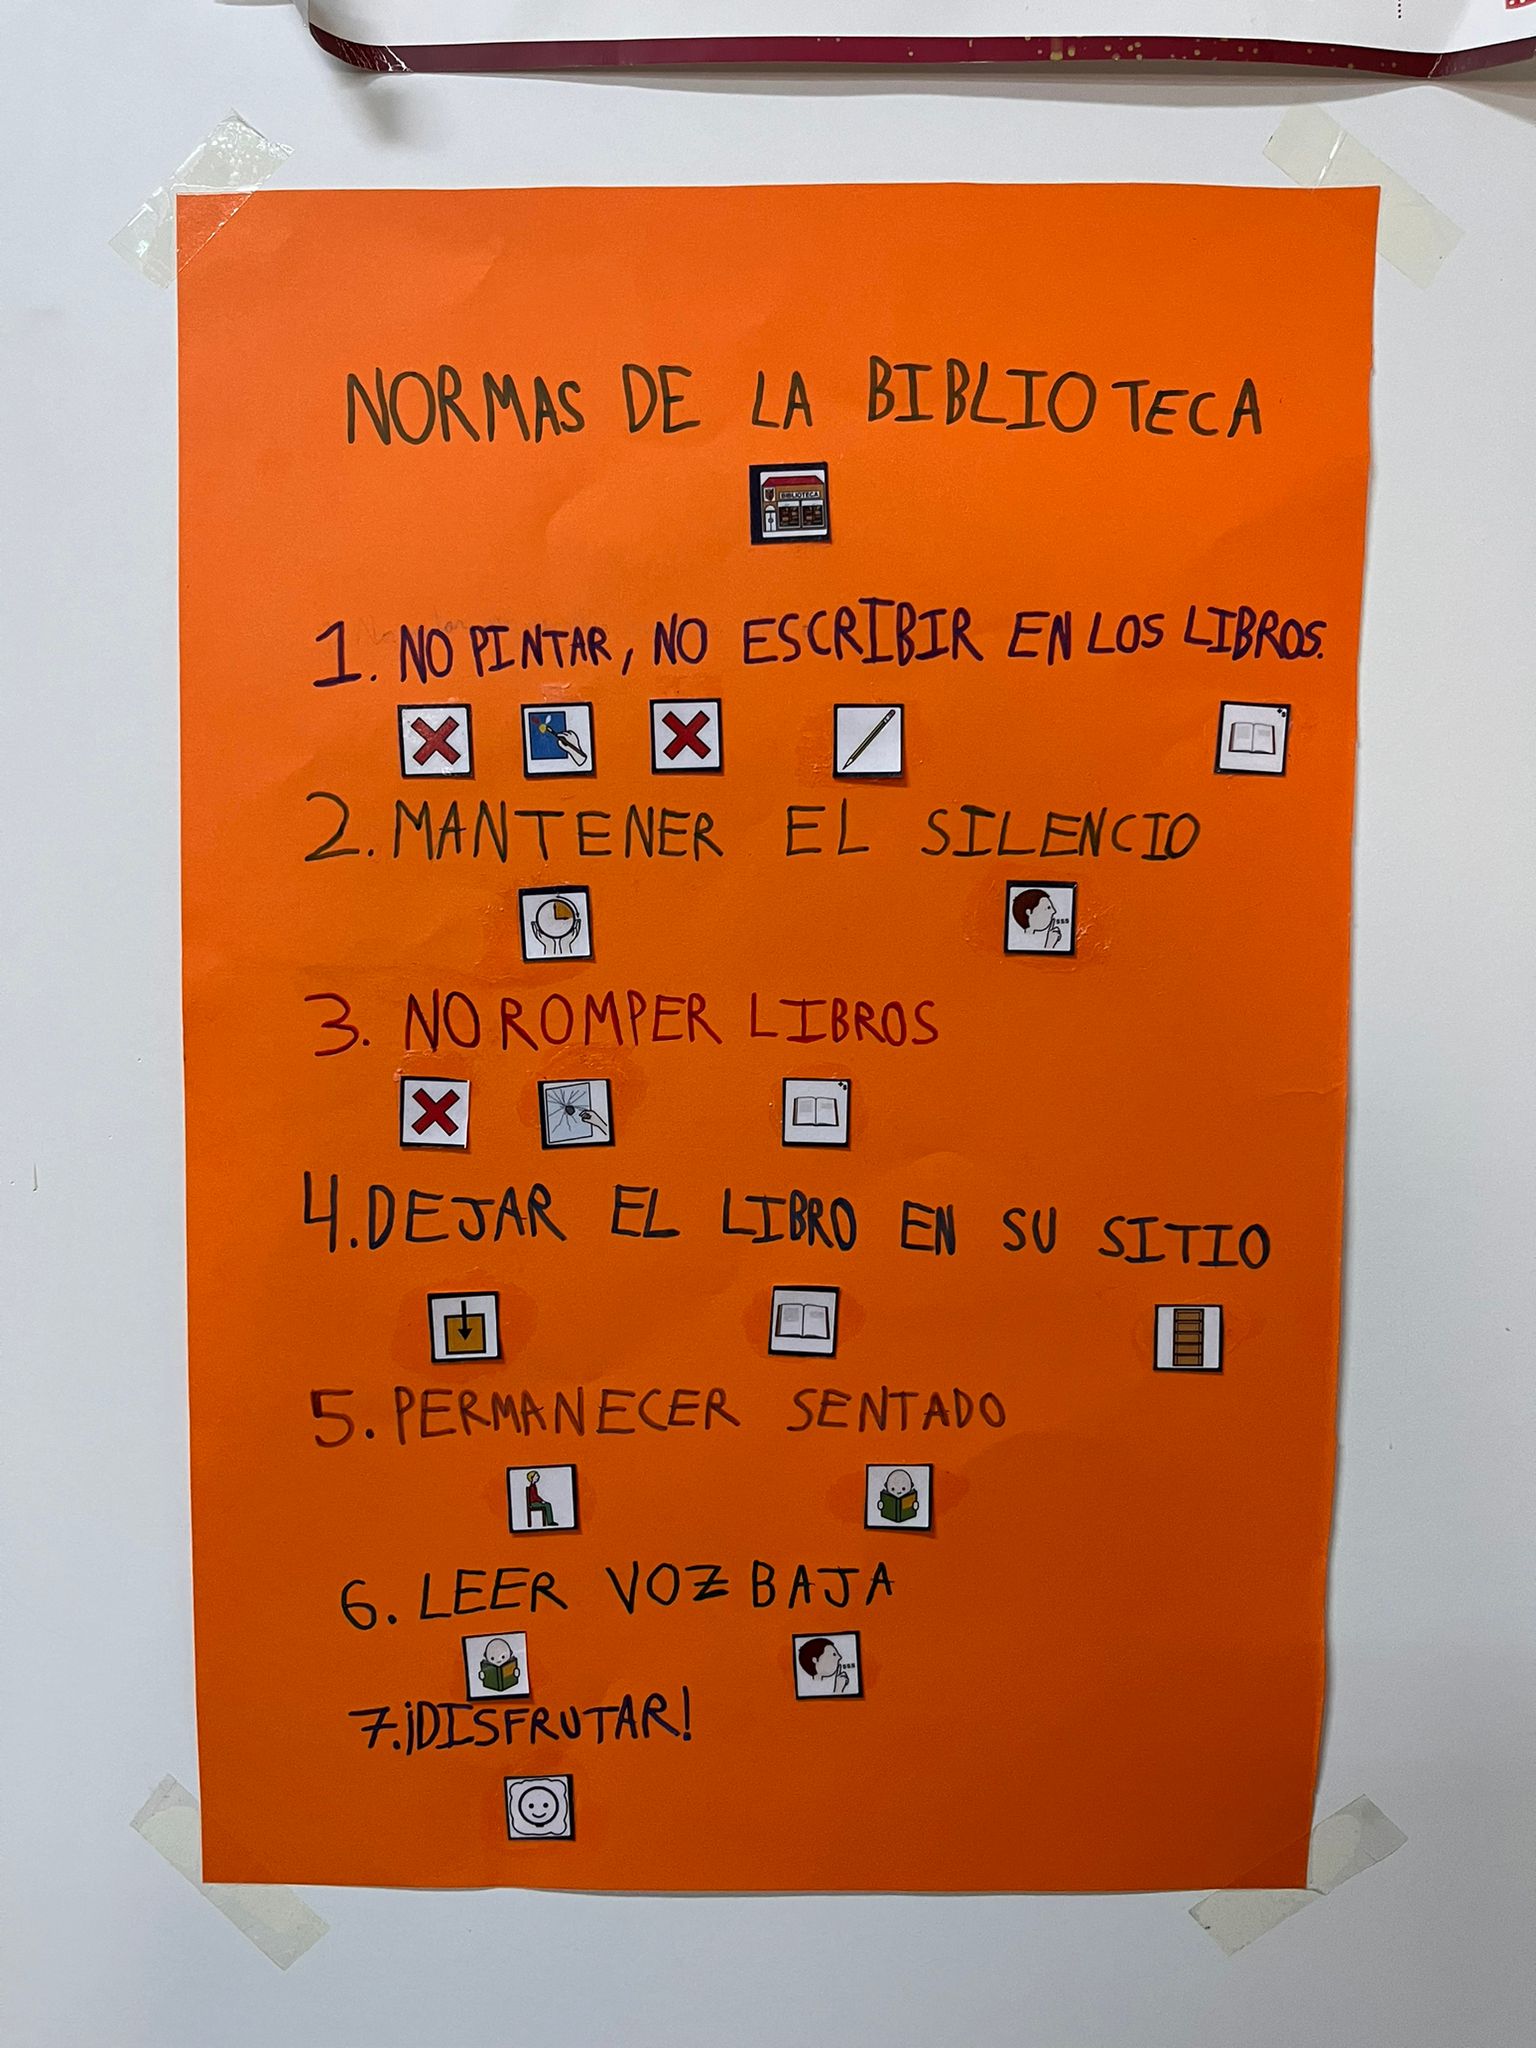 NORMAS DE LA BIBLIOTECA
BIBLIOTECA
1. NO PINTAR, NO ESCRIBIR EN LOS LIBROS.
2. MANTENER EL SILENCIO
sss
3. NO ROMPER LIBROS
4. DEJAR EL LIBRO EN SU SITIO
5. PERMANECER SENTADO
6. LEER VOZ BAJA
sss
7. ¡DISFRUTAR!